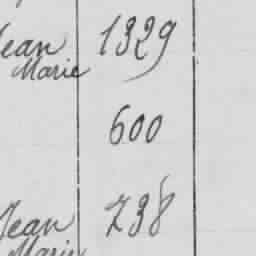 Jean 1329
Marie
600
Jean 738
Marie